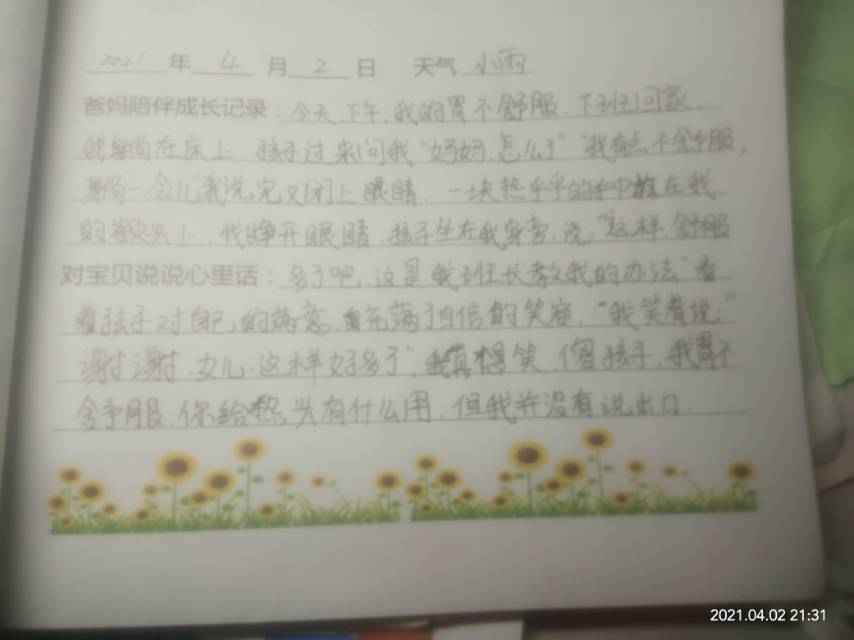 2021 年 4 月 2 日 天气 小雨
爸妈陪伴成长记录：今天下午,我的胃不舒服,下班回家,
我躺在床上,孩子过来问我"妈妈,怎么了""我有点不舒服,
躺一会儿"我说完又闭上眼睛,一块热乎乎的 在我
的额头上,我睁开眼睛,孩子坐在我身旁,说,"这样,舒服
对宝贝说说心里话：多了吧,这是我班长教我的办法"看
着孩子对自己的满意,充满了自信的笑容,"我笑着说"
谢谢,女儿,这样好多了",我真想笑,傻孩子,我胃不
舒服,你给热头有什么用,但我并没有说出口.
2021.04.02 21:31